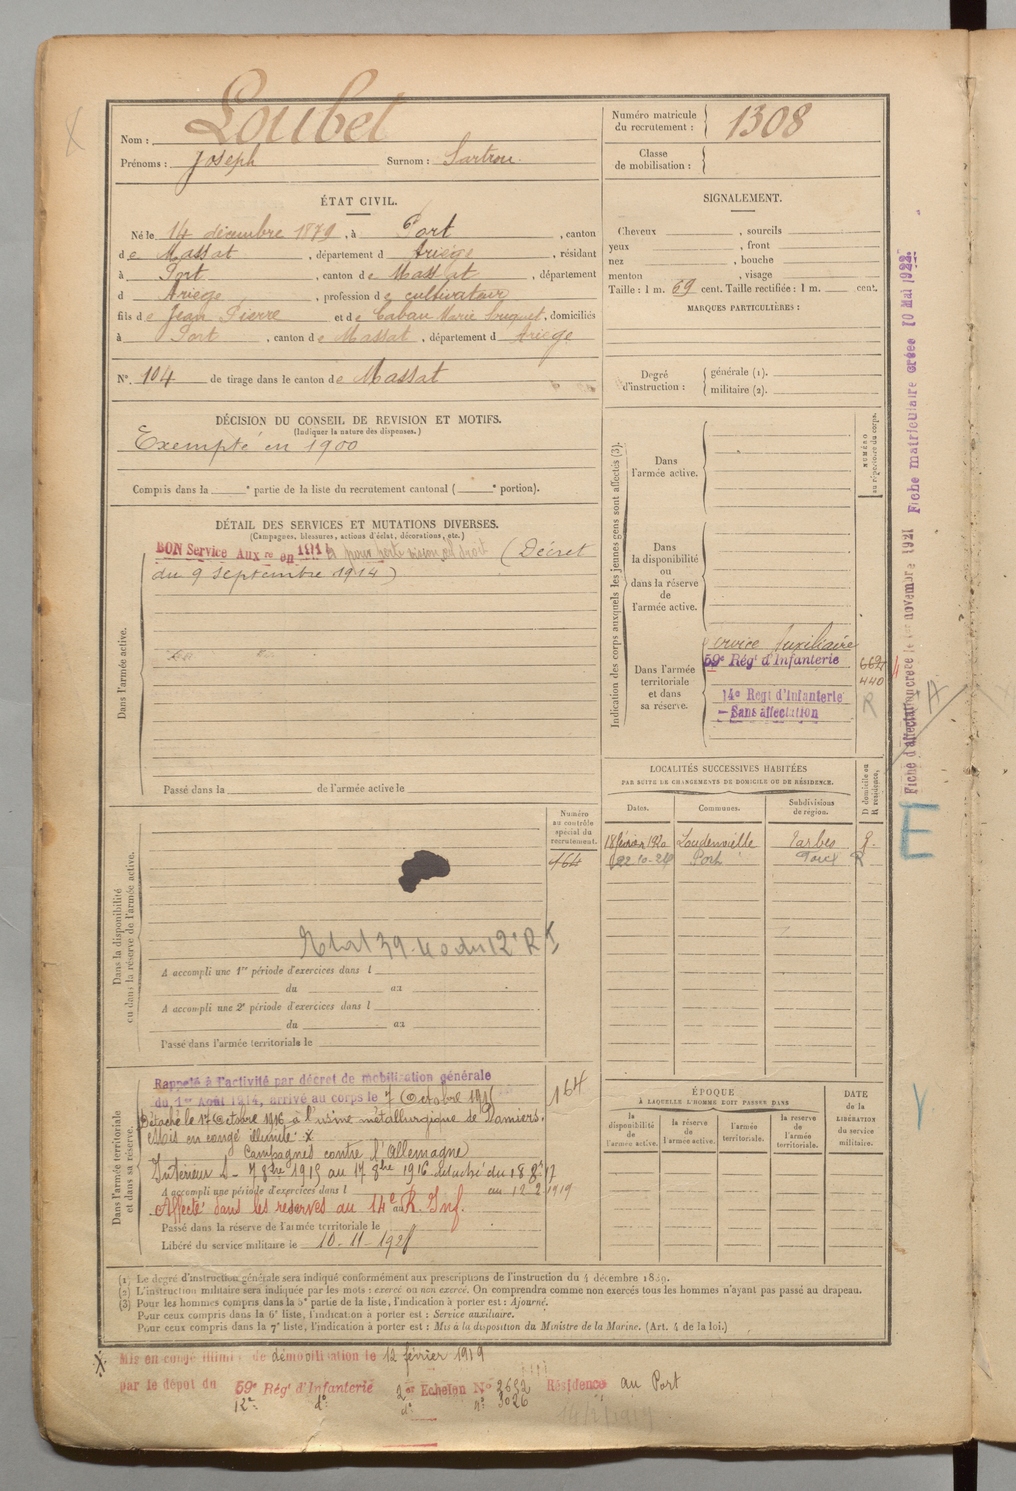 Nom : Loubet
Prénoms : Joseph Surnom : Sartrou
Numéro matricule du recrutement : 1308
Classe de mobilisation :
ÉTAT CIVIL.
Né le 14 décembre 1879, à Port, canton
de Massat, département d Ariège, résidant
à Port, canton de Massat, département
d Ariège, profession de cultivateur
fils de Jean Pierre et de Caban Marie, domiciliés
à Port, canton de Massat, département d Ariège
N° 104 de tirage dans le canton de Massat
SIGNALEMENT.
Cheveux , sourcils
yeux , front
nez , bouche
menton , visage
Taille : 1 m. 69 cent. Taille rectifiée : 1 m. cent.
MARQUES PARTICULIÈRES :
Degré d'instruction : générale (1).
militaire (2).
DÉCISION DU CONSEIL DE REVISION ET MOTIFS.
(Indiquer la nature des dispenses.)
Exempté en 1900
Compris dans la e partie de la liste du recrutement cantonal ( e portion).
DÉTAIL DES SERVICES ET MUTATIONS DIVERSES.
(Campagnes, blessures, actions d'éclat, décorations, etc.)
BON Service Aux re en 1914 pour perte vision œil droit (Décret
du 9 Septembre 1914)
Dans l'armée active.
Passé dans la de l'armée active le
Indication des corps auxquels les jeunes gens sont affectés (3).
NUMÉRO au répertoire du corps.
Dans l'armée active.
Dans la disponibilité ou dans la réserve de l'armée active.
Dans l'armée territoriale et dans sa réserve.
Service Auxiliaire
59e Régt d'Infanterie
440
14e Regt d'Infanterie
R
– Sans affectation
Fiche d'affectation créée le 1er novembre 1921 Fiche matriculaire créée 10 Mai 1922.
E
LOCALITÉS SUCCESSIVES HABITÉES
PAR SUITE DE CHANGEMENTS DE DOMICILE OU DE RÉSIDENCE.
Dates. Communes. Subdivisions de région. D domicile ou R résidence.
18 février 1920 Loudenvielle Tarbes R.
22-10-24 Port Foix R
Dans la disponibilité ou dans la réserve de l'armée active.
Numéro au contrôle spécial du recrutement.
164
A accompli une 1re période d'exercices dans l
du au
A accompli une 2e période d'exercices dans l
du au
Passé dans l'armée territoriale le
Dans l'armée territoriale et dans sa réserve.
Rappelé à l'activité par décret de mobilisation générale
du 1er Août 1914, arrivé au corps le 7 Octobre 1915
164
Détaché le 17 Octobre 1916 à l'usine métallurgique de Pamiers.
Mis en congé illimité X
Campagnes contre l'Allemagne
Intérieur du 7 8bre 1915 au 17 8bre 1916 détaché du 18 8bre
au 12 2 1919
A accompli une période d'exercices dans l
Affecté dans les reserves au 14e R. Inf.
Passé dans la réserve de l'armée territoriale le
Libéré du service militaire le 10-11-1928
ÉPOQUE
À LAQUELLE L'HOMME DOIT PASSER DANS
la disponibilité de l'armée active. la réserve de l'armée active. l'armée territoriale. la réserve de l'armée territoriale.
DATE de la LIBÉRATION du service militaire.
(1) Le degré d'instruction générale sera indiqué conformément aux prescriptions de l'instruction du 4 décembre 1889.
(2) L'instruction militaire sera indiquée par les mots : exercé ou non exercé. On comprendra comme non exercés tous les hommes n'ayant pas passé au drapeau.
(3) Pour les hommes compris dans la 5e partie de la liste, l'indication à porter est : Ajourné.
Pour ceux compris dans la 6e liste, l'indication à porter est : Service auxiliaire.
Pour ceux compris dans la 7e liste, l'indication à porter est : Mis à la disposition du Ministre de la Marine. (Art. 4 de la loi.)
X Mis en congé illimité de démobilisation le 12 février 1919
par le dépôt du 59e Régt d'Infanterie 2e Echelon No 2652 Résidence au Port
do n° 3026